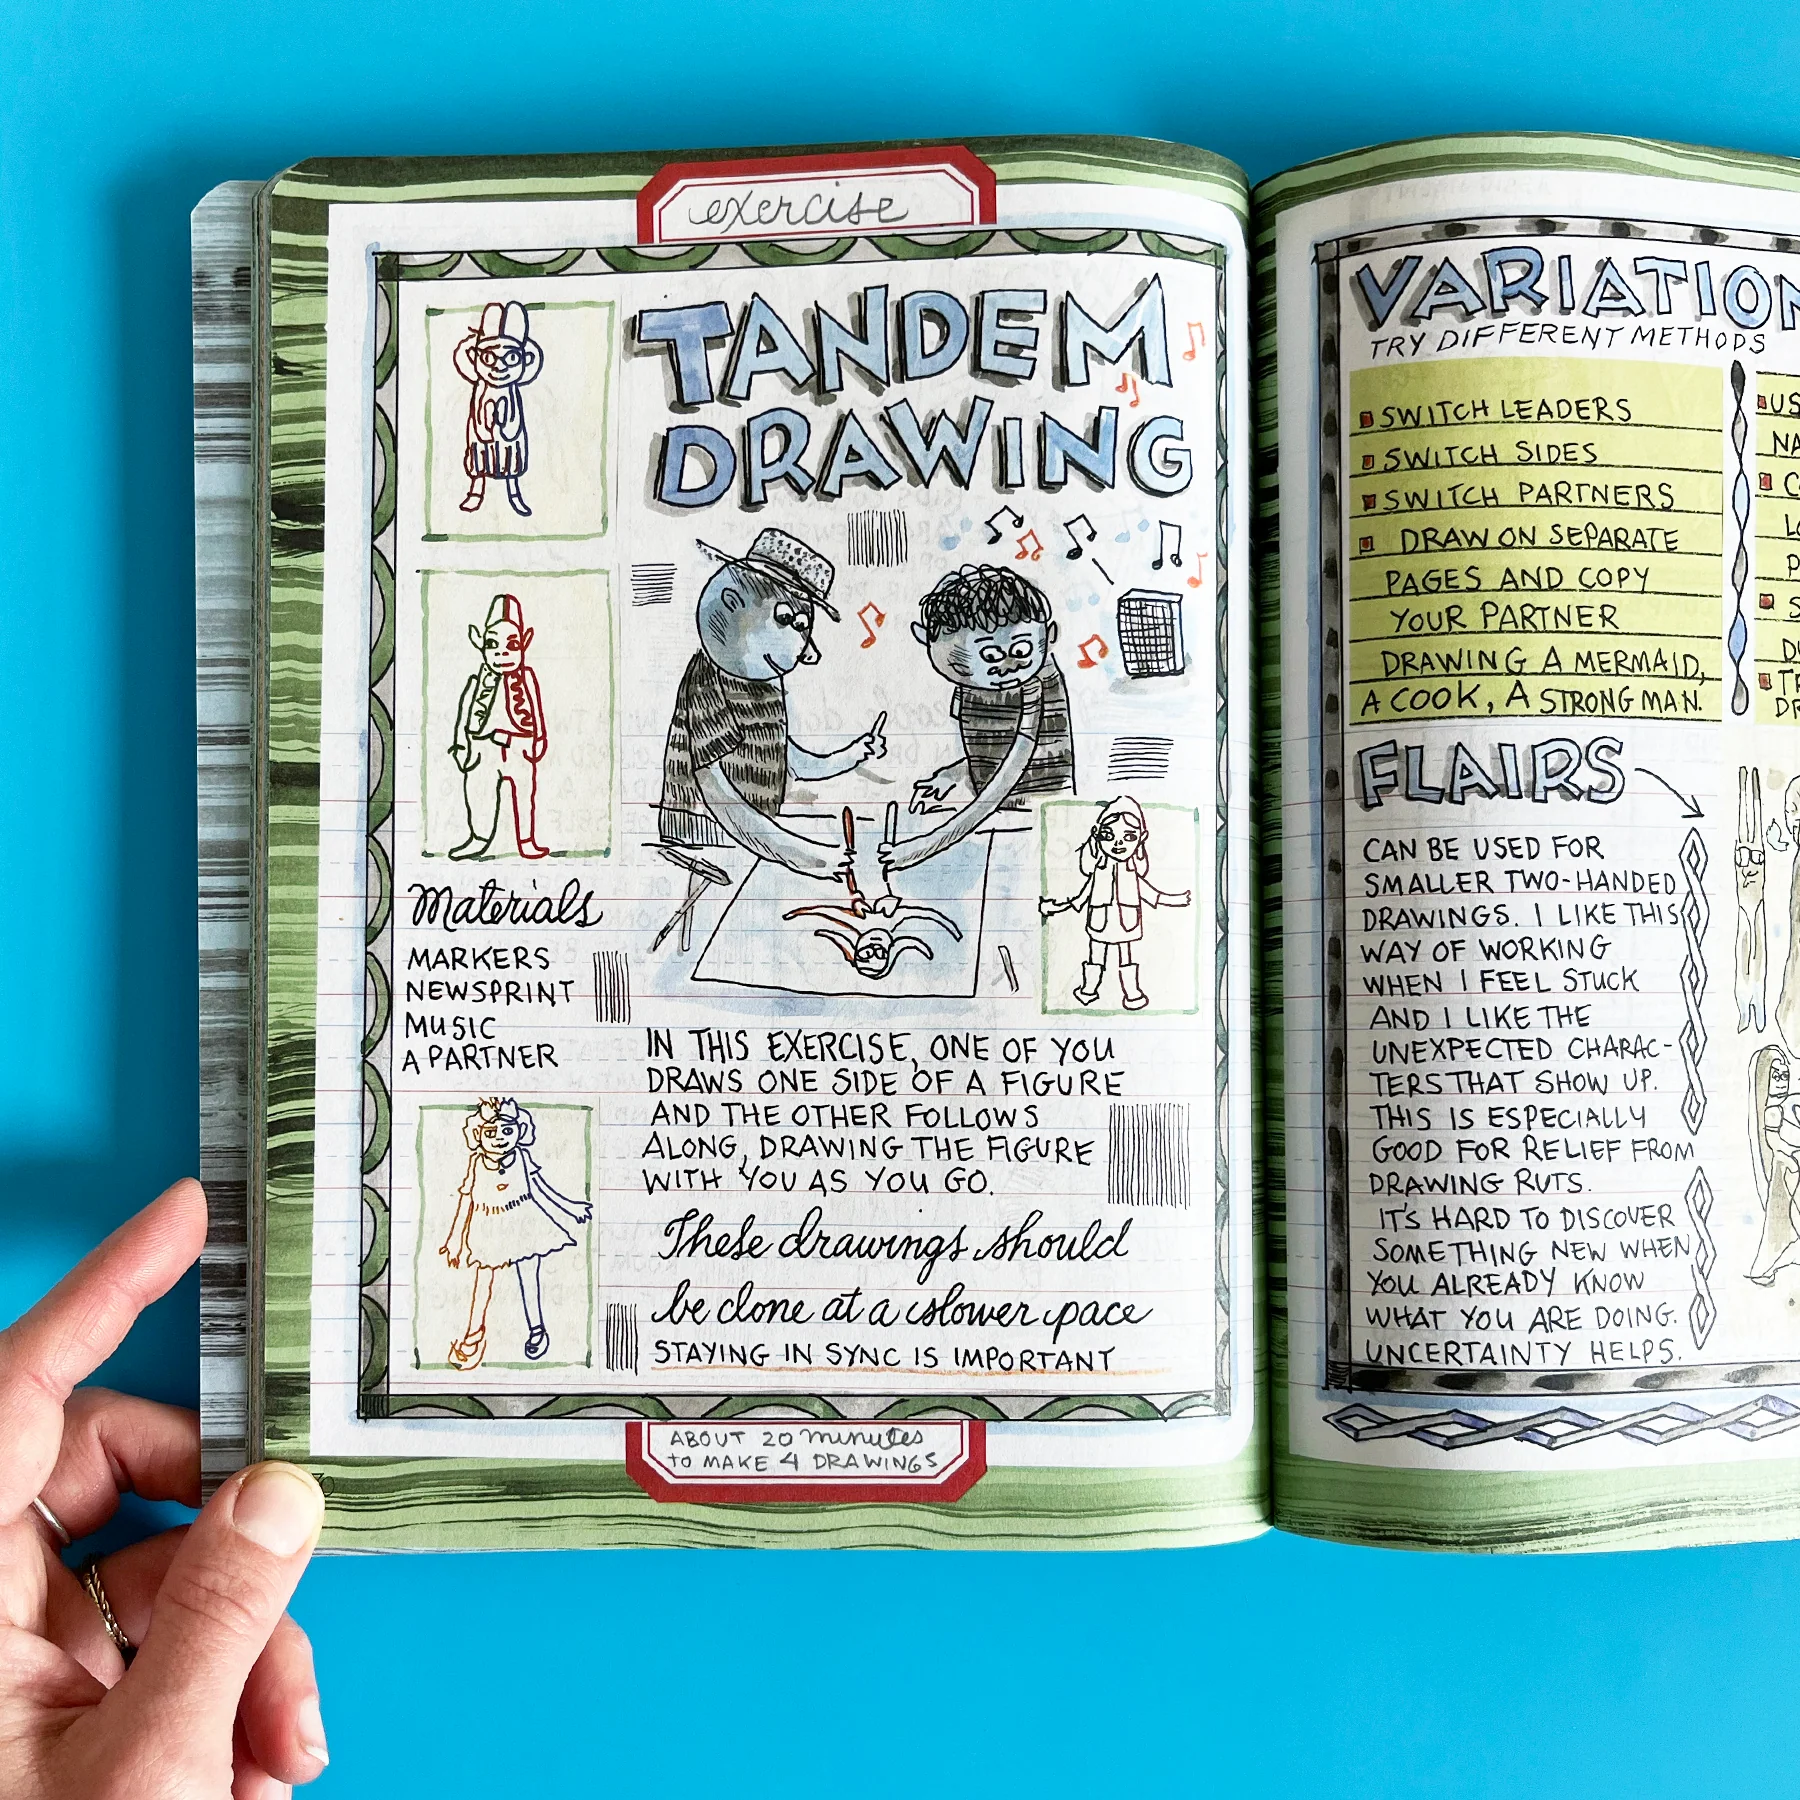 exercise
TANDEM
DRAWING
Materials
MARKERS
NEWSPRINT
MUSIC
A PARTNER
IN THIS EXERCISE, ONE OF YOU
DRAWS ONE SIDE OF A FIGURE
AND THE OTHER FOLLOWS
ALONG, DRAWING THE FIGURE
WITH YOU AS YOU GO.
These drawings should
be done at a slower pace
STAYING IN SYNC IS IMPORTANT
ABOUT 20 minutes
TO MAKE 4 DRAWINGS
VARIATION
TRY DIFFERENT METHODS
SWITCH LEADERS
SWITCH SIDES
SWITCH PARTNERS
DRAW ON SEPARATE
PAGES AND COPY
YOUR PARTNER
DRAWING A MERMAID,
A COOK, A STRONG MAN.
US
NA
FLAIRS
CAN BE USED FOR
SMALLER TWO-HANDED
DRAWINGS. I LIKE THIS
WAY OF WORKING
WHEN I FEEL STUCK
AND I LIKE THE
UNEXPECTED CHARAC-
TERS THAT SHOW UP.
THIS IS ESPECIALLY
GOOD FOR RELIEF FROM
DRAWING RUTS.
IT'S HARD TO DISCOVER
SOMETHING NEW WHEN
YOU ALREADY KNOW
WHAT YOU ARE DOING.
UNCERTAINTY HELPS.